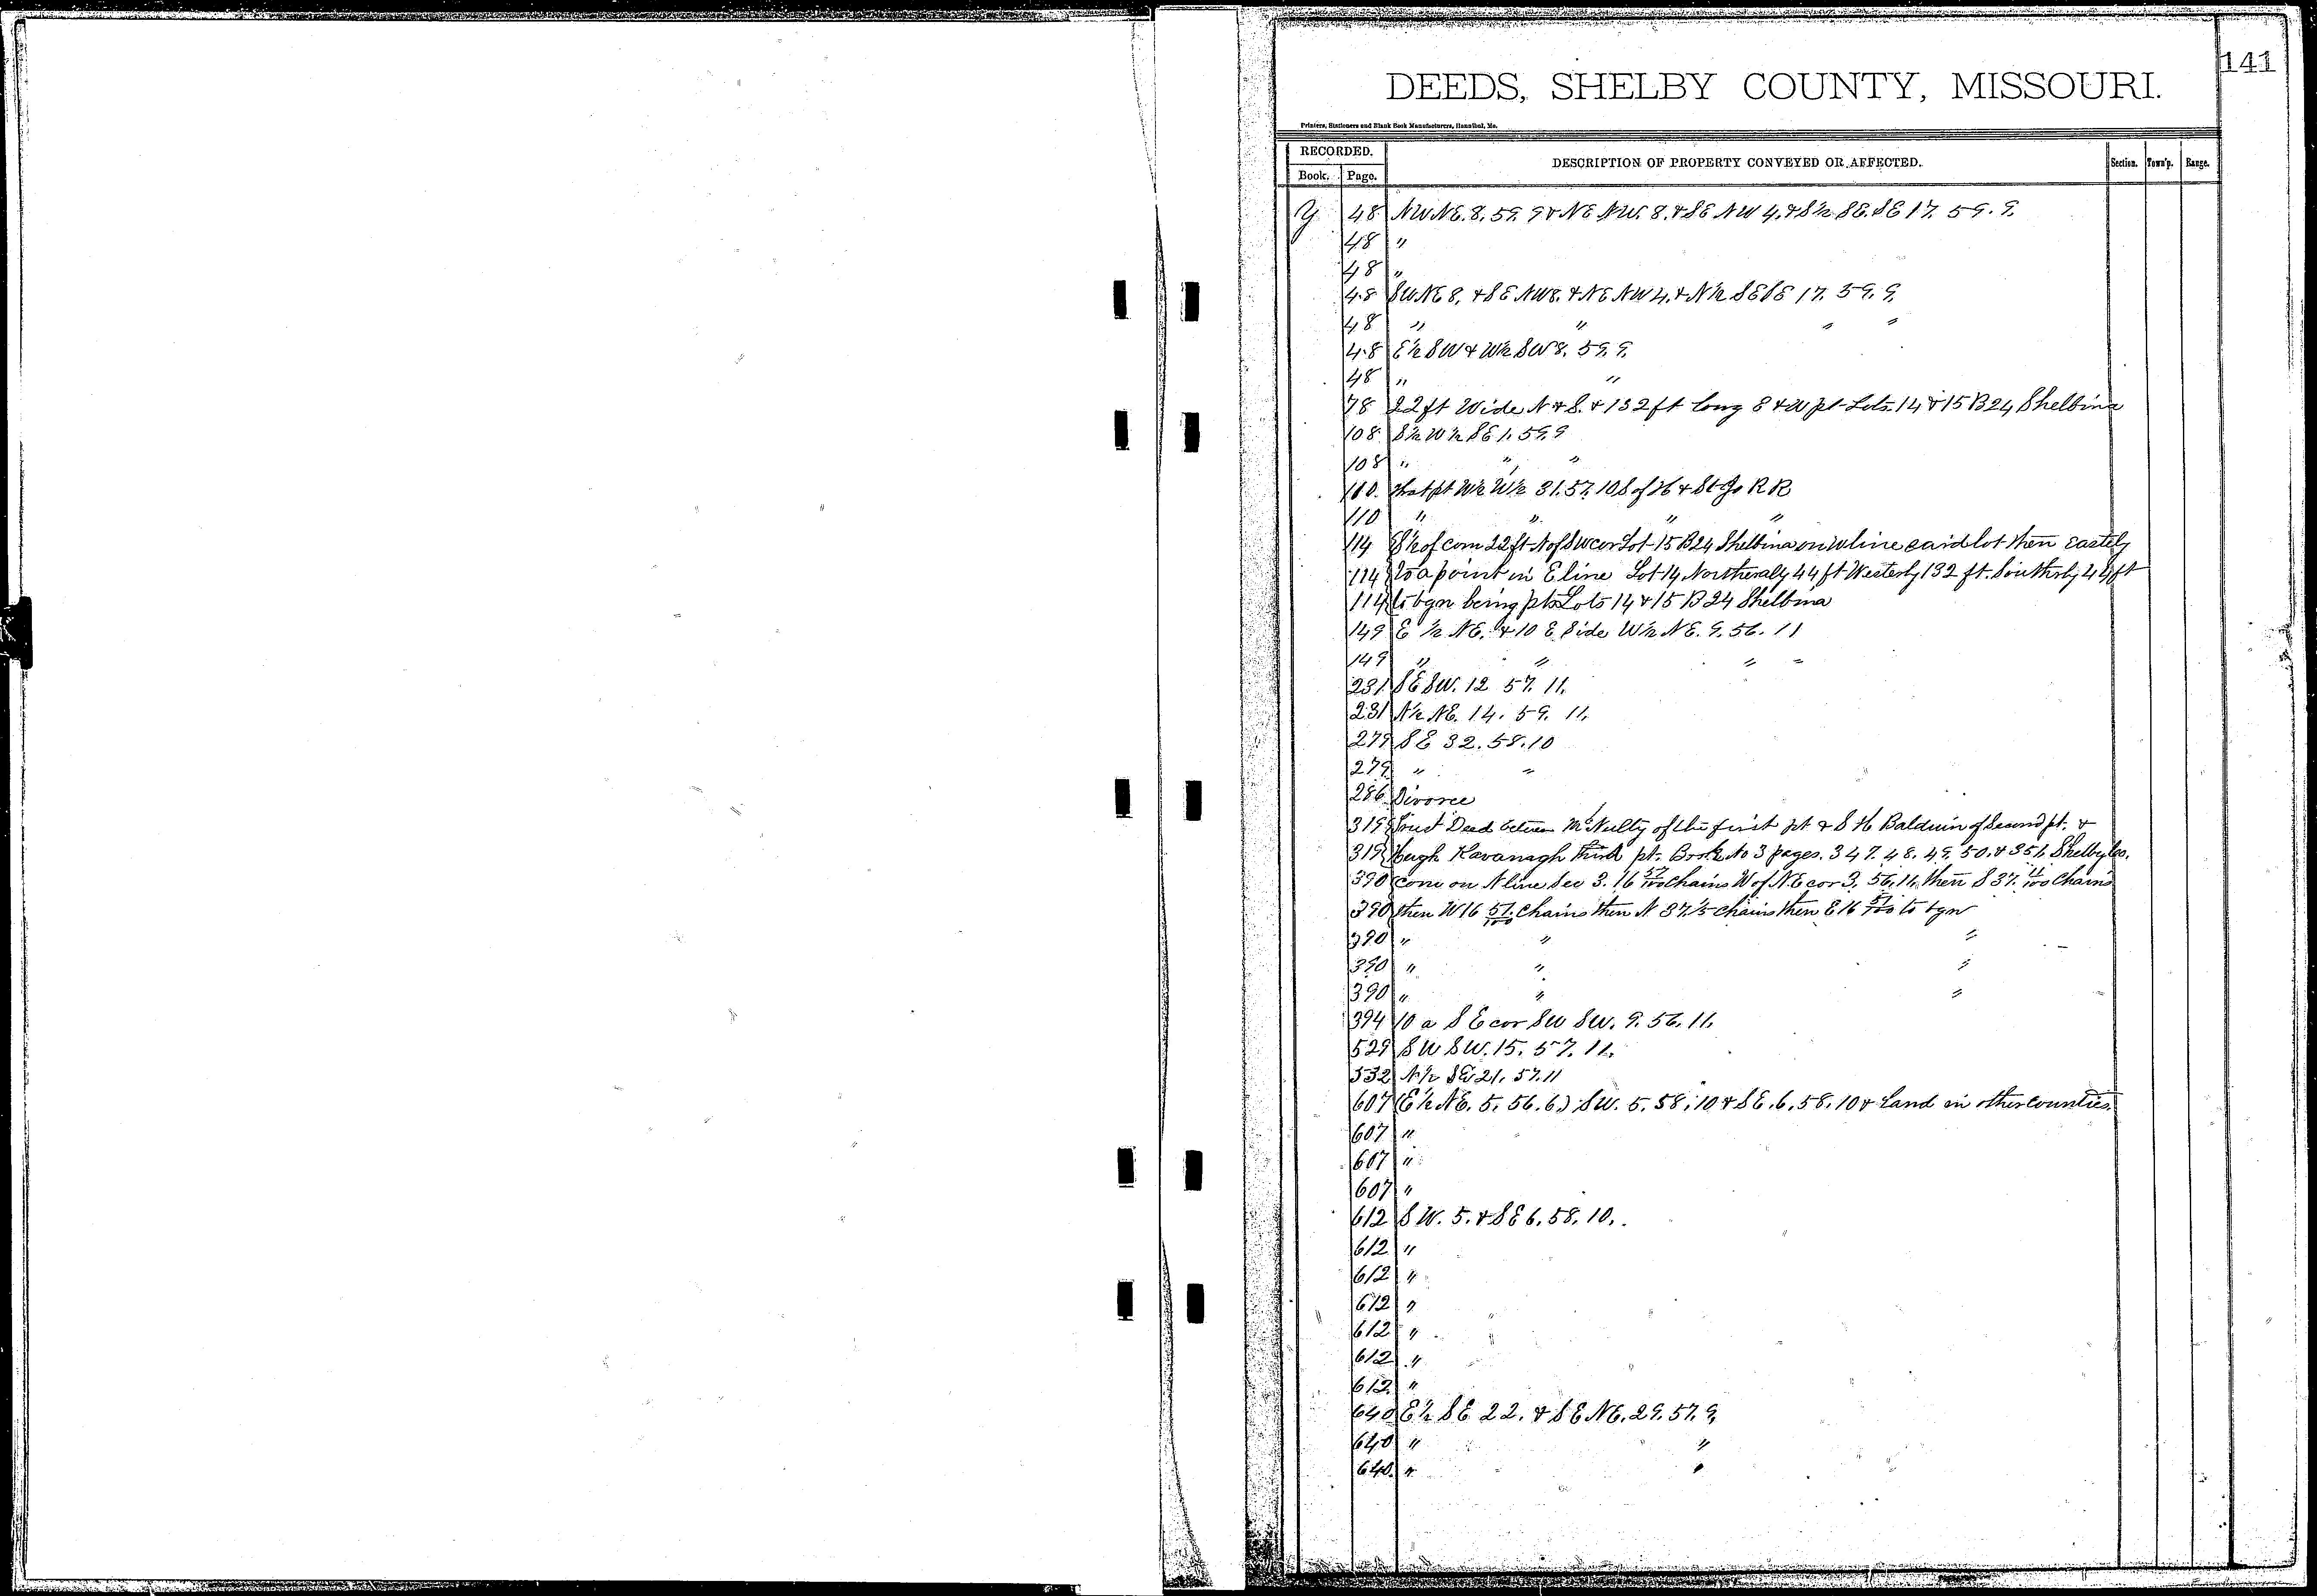 141
DEEDS, SHELBY COUNTY, MISSOURI.
Printers, Stationers and Blank Book Manufacturers, Hannibal, Mo.
RECORDED. DESCRIPTION OF PROPERTY CONVEYED OR AFFECTED. Section. Town'p. Range.
Book. Page.
Y 48 NW NE. 8. 59. 9 & NE NW. 8. & SE NW 4. & S½ SE. SE 17. 59. 9.
48 "
48 "
48 SW NE 8. & SE NW 8. & NE NW 4. & N½ SE SE 17. 59. 9.
48 " " " "
48 E½ SW & W½ SW 8. 59. 9.
48 " "
78 22 ft Wide N & S. & 132 ft long E & W pt Lots. 14 & 15 B 24 Shelbina
108 S½ W½ SE 1. 59. 9
108 " " "
110. That pt W½ W½ 31. 57. 10 S of H & St Jo R R
110 " " " "
114 S½ of com 22 ft N of SW cor Lot 15 B 24 Shelbina on W line said lot then Eastely
114 to a point in E line Lot 14 Northeraly 44 ft Westerly 132 ft. Southerly 44 ft
114 to bgn being pts Lots 14 & 15 B 24 Shelbina
149 E ½ NE. & 10 E Side W½ NE. 9. 56. 11
149 " " " "
231 SE SW. 12 57. 11.
231 N½ NE. 14. 59. 11.
279 SE 32. 58. 10
279 " "
286 Divorce
319 Trust Deed between McNulty of the first pt & S H Baldwin of Second pt. &
319 Hugh Kavanagh Third pt. Book No 3 pages. 347. 48. 49. 50. & 351. Shelby Co.
390 Com on N line Sec 3. 16 57/100 Chains W of NE cor 3. 56. 11. then S 37. 11/100 Chains
390 then W 16 57/100 Chains then N 37. 1/5 Chains then E 16 57/100 to bgn
390 " " "
390 " " "
390 " " "
394 10 a S E cor SW SW. 9. 56. 11.
529 SW SW. 15. 57. 11.
532 N½ SE 21. 57. 11
607 (E½ NE. 5. 56. 6.) SW. 5. 58. 10 & SE. 6. 58. 10 & Land in other Counties.
607 "
607 "
607 "
612 SW. 5. & SE 6. 58. 10.
612 "
612 "
612 "
612 "
612 "
612 "
640 E½ SE 22. & SE NE. 29. 57. 9.
640 " "
640. " "